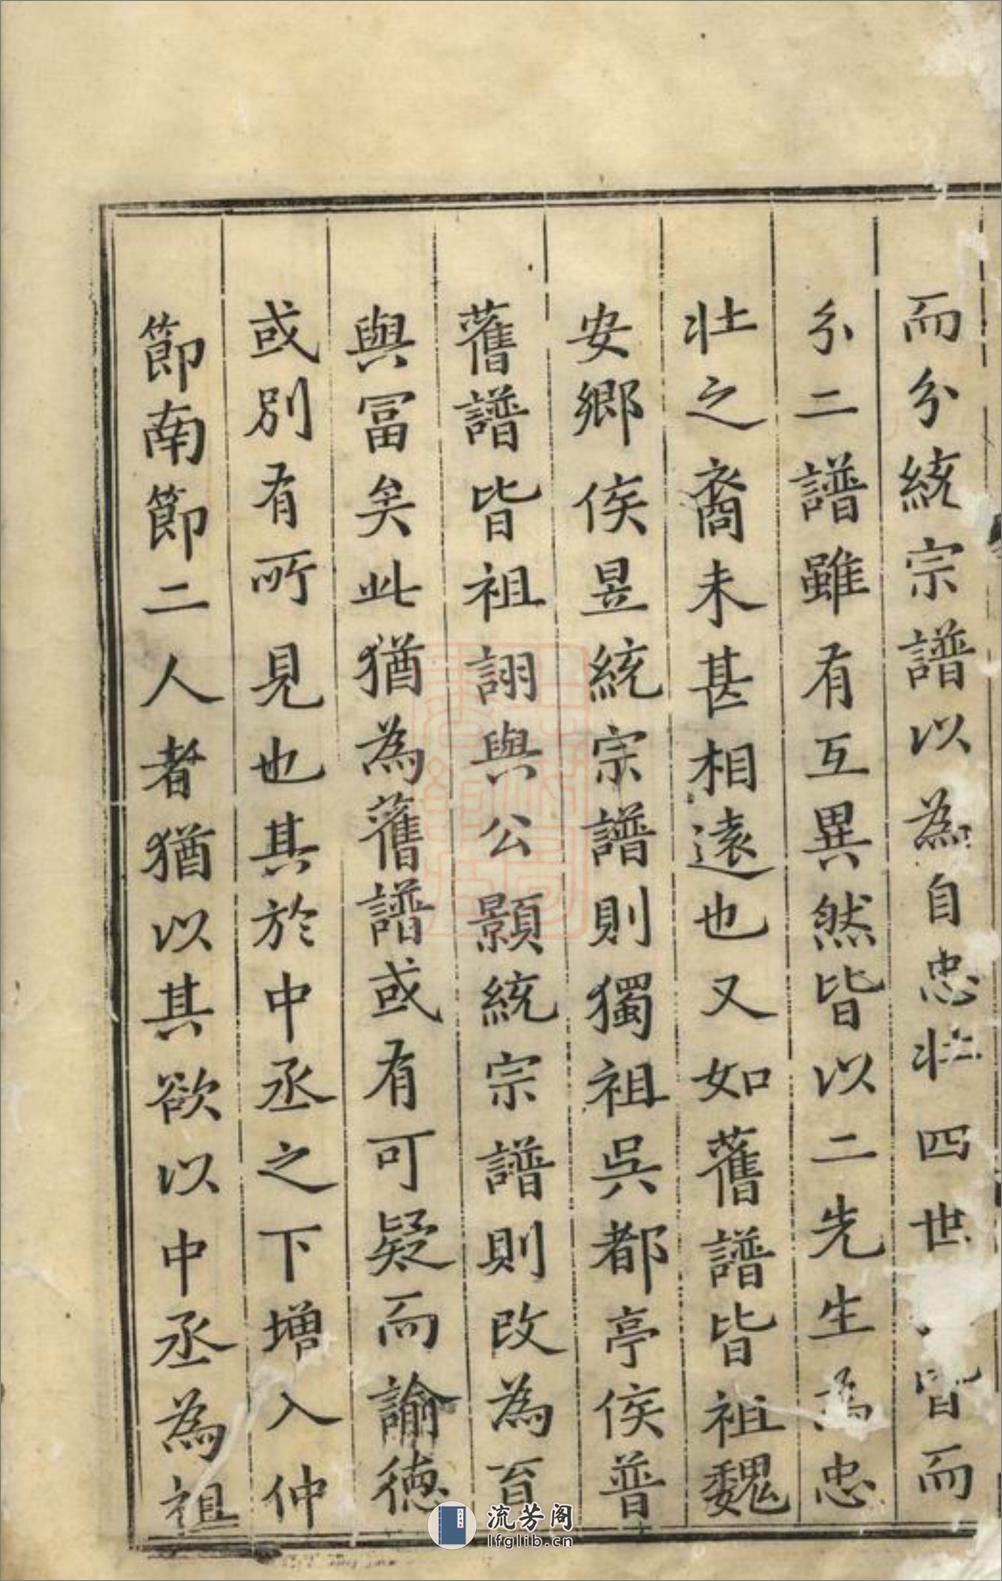 而分統宗譜以為自忠壯四世皆而
分二譜雖有互異然皆以二先生為忠
壯之裔未甚相遠也又如舊譜皆祖魏
安鄉侯昱統宗譜則獨祖吳都亭侯普
舊譜皆祖詡與公顥統宗譜則改為育
與冨矣此猶為舊譜或有可疑而諭德
或別有所見也其於中丞之下增入仲
節南節二人者猶以其欲以中丞為祖
流芳阁
lfglib.cn